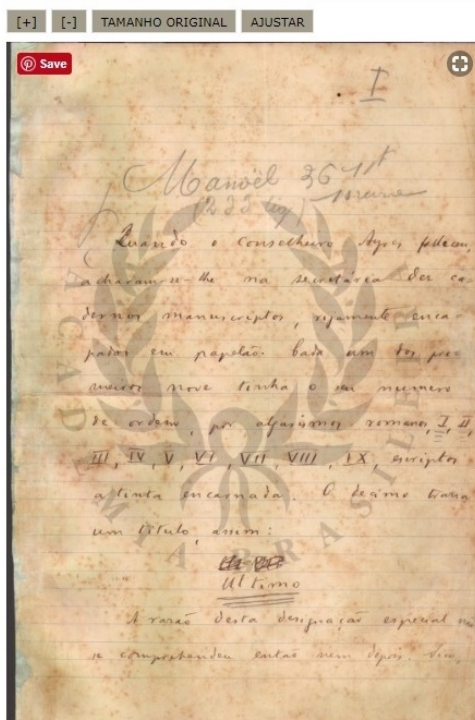 [+] [-] TAMANHO ORIGINAL AJUSTAR
Save
I
Manoel 36
Quando o conselheiro Ayres falleceu,
acharam-se-lhe na secretária dez ca-
dernos manuscriptos, rijamente enca-
pados em papelão. Cada um dos pri-
meiros nove tinha o seu numero
de ordem, por algarismos romanos, I, II,
III, IV, V, VI, VII, VIII, IX, escriptos
a tinta encarnada. O decimo trazia
um titulo, assim:
Ultimo
A razão desta designação especial não
se comprehendeu então nem depois.
ACADEMIA BRASILEIRA